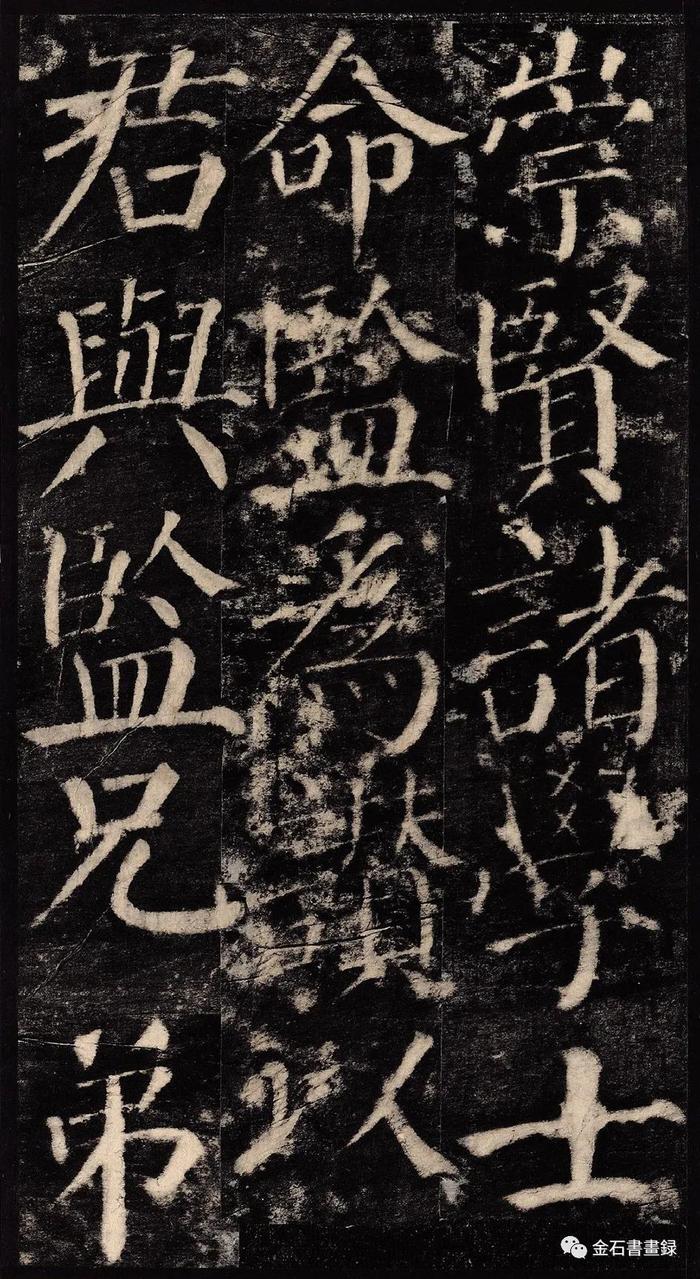 崇賢諸學士
命監爲讃以
君與監兄弟
金石書畫録